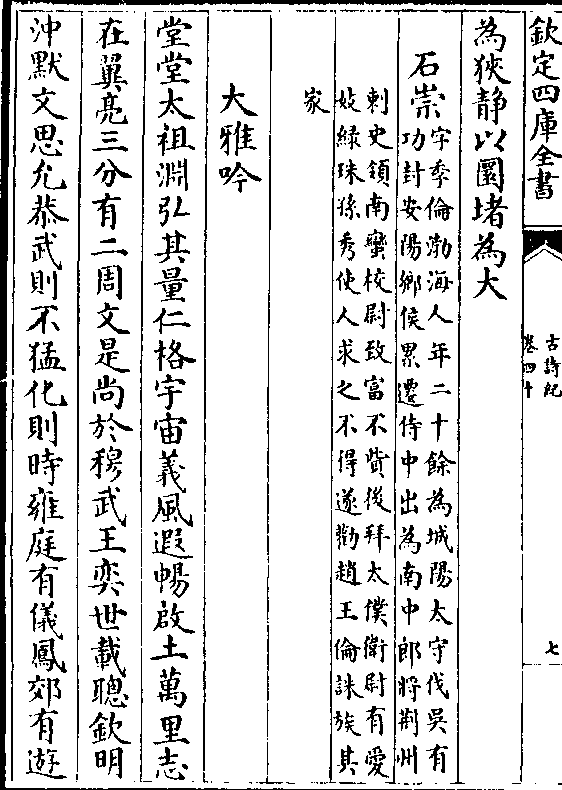 欽定四庫全書
古詩紀
卷四十
七
為狹靜以圜堵為大
石崇
字季倫渤海人年二十餘為城陽太守伐吳有
功封安陽鄉侯累遷侍中出為南中郎將荆州
刺史領南蠻校尉致富不貲後拜太僕衛尉有愛
妓綠珠孫秀使人求之不得遂勸趙王倫誅族其
家
大雅吟
堂堂太祖淵弘其量仁格宇宙義風遐暢啟土萬里志
在翼亮三分有二周文是尚於穆武王奕世載聰欽明
沖默文思允恭武則不猛化則時雍庭有儀鳳郊有遊